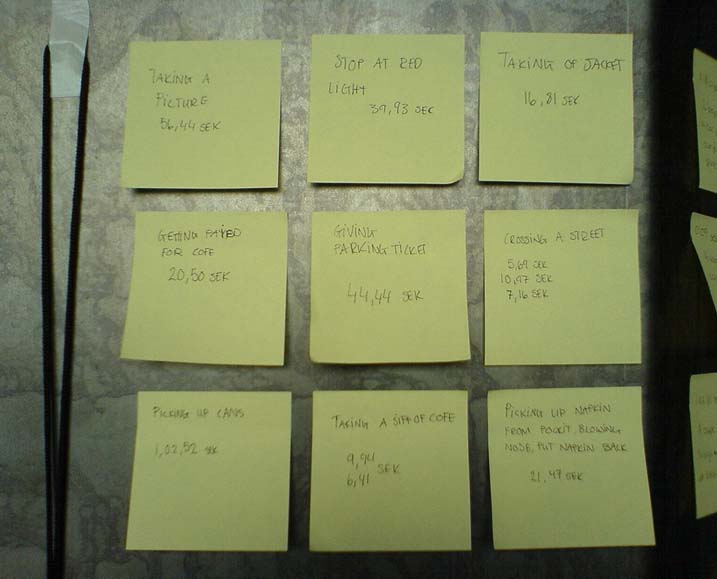 TAKING A
PICTURE
56,44 SEK
STOP AT RED
LIGHT
39,93 SEK
TAKING OF JACKET
16,81 SEK
GETTING PAYED
FOR COFE
20,50 SEK
GIVING
PARKING TICKET
44,44 SEK
CROSSING A STREET
5,69 SEK
10,97 SEK
7,16 SEK
PICKING UP CANS
1,02,52 SEK
TAKING A SIPP OF COFE
9,94
6,41 SEK
PICKING UP NAPKIN
FROM POCKIT, BLOWING
NOSE, PUT NAPKIN BACK
21,47 SEK